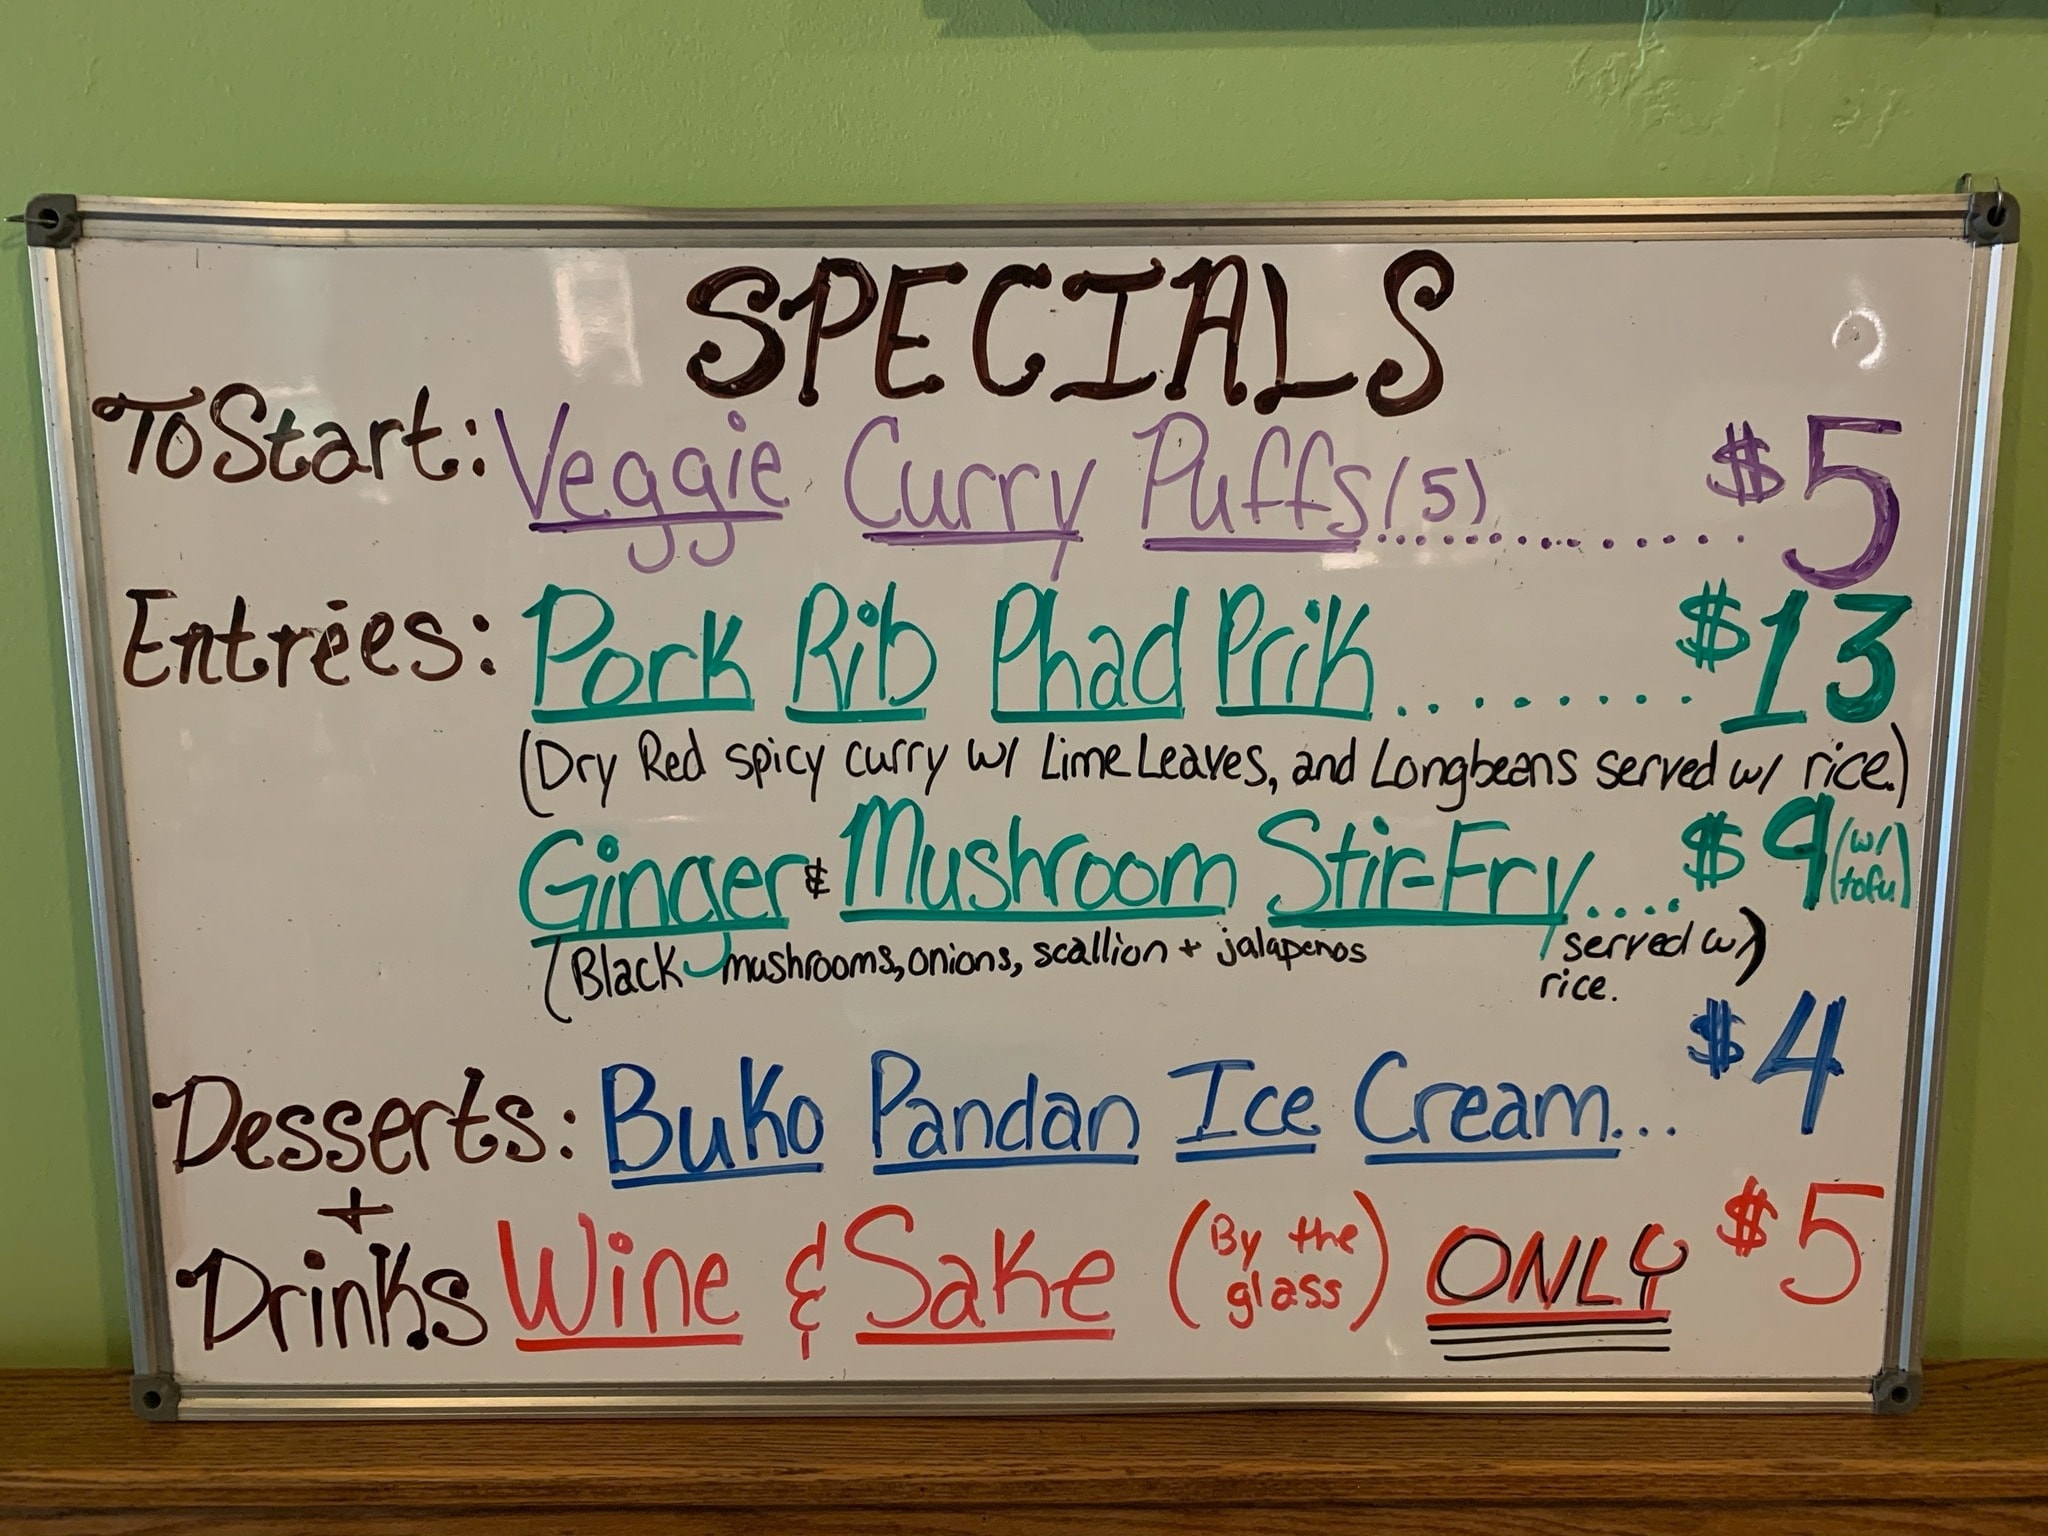 SPECIALS
To Start: Veggie Curry Puffs (5)............. $5
Entrées: Pork Rib Phad Prik......... $13
(Dry Red spicy curry w/ Lime Leaves, and Longbeans served w/ rice.)
Ginger & Mushroom Stir-Fry.... $9 (w/ tofu)
(Black mushrooms, onions, scallion + jalapenos served w/ rice.)
Desserts: Buko Pandan Ice Cream... $4
+
Drinks Wine & Sake (By the glass) ONLY $5